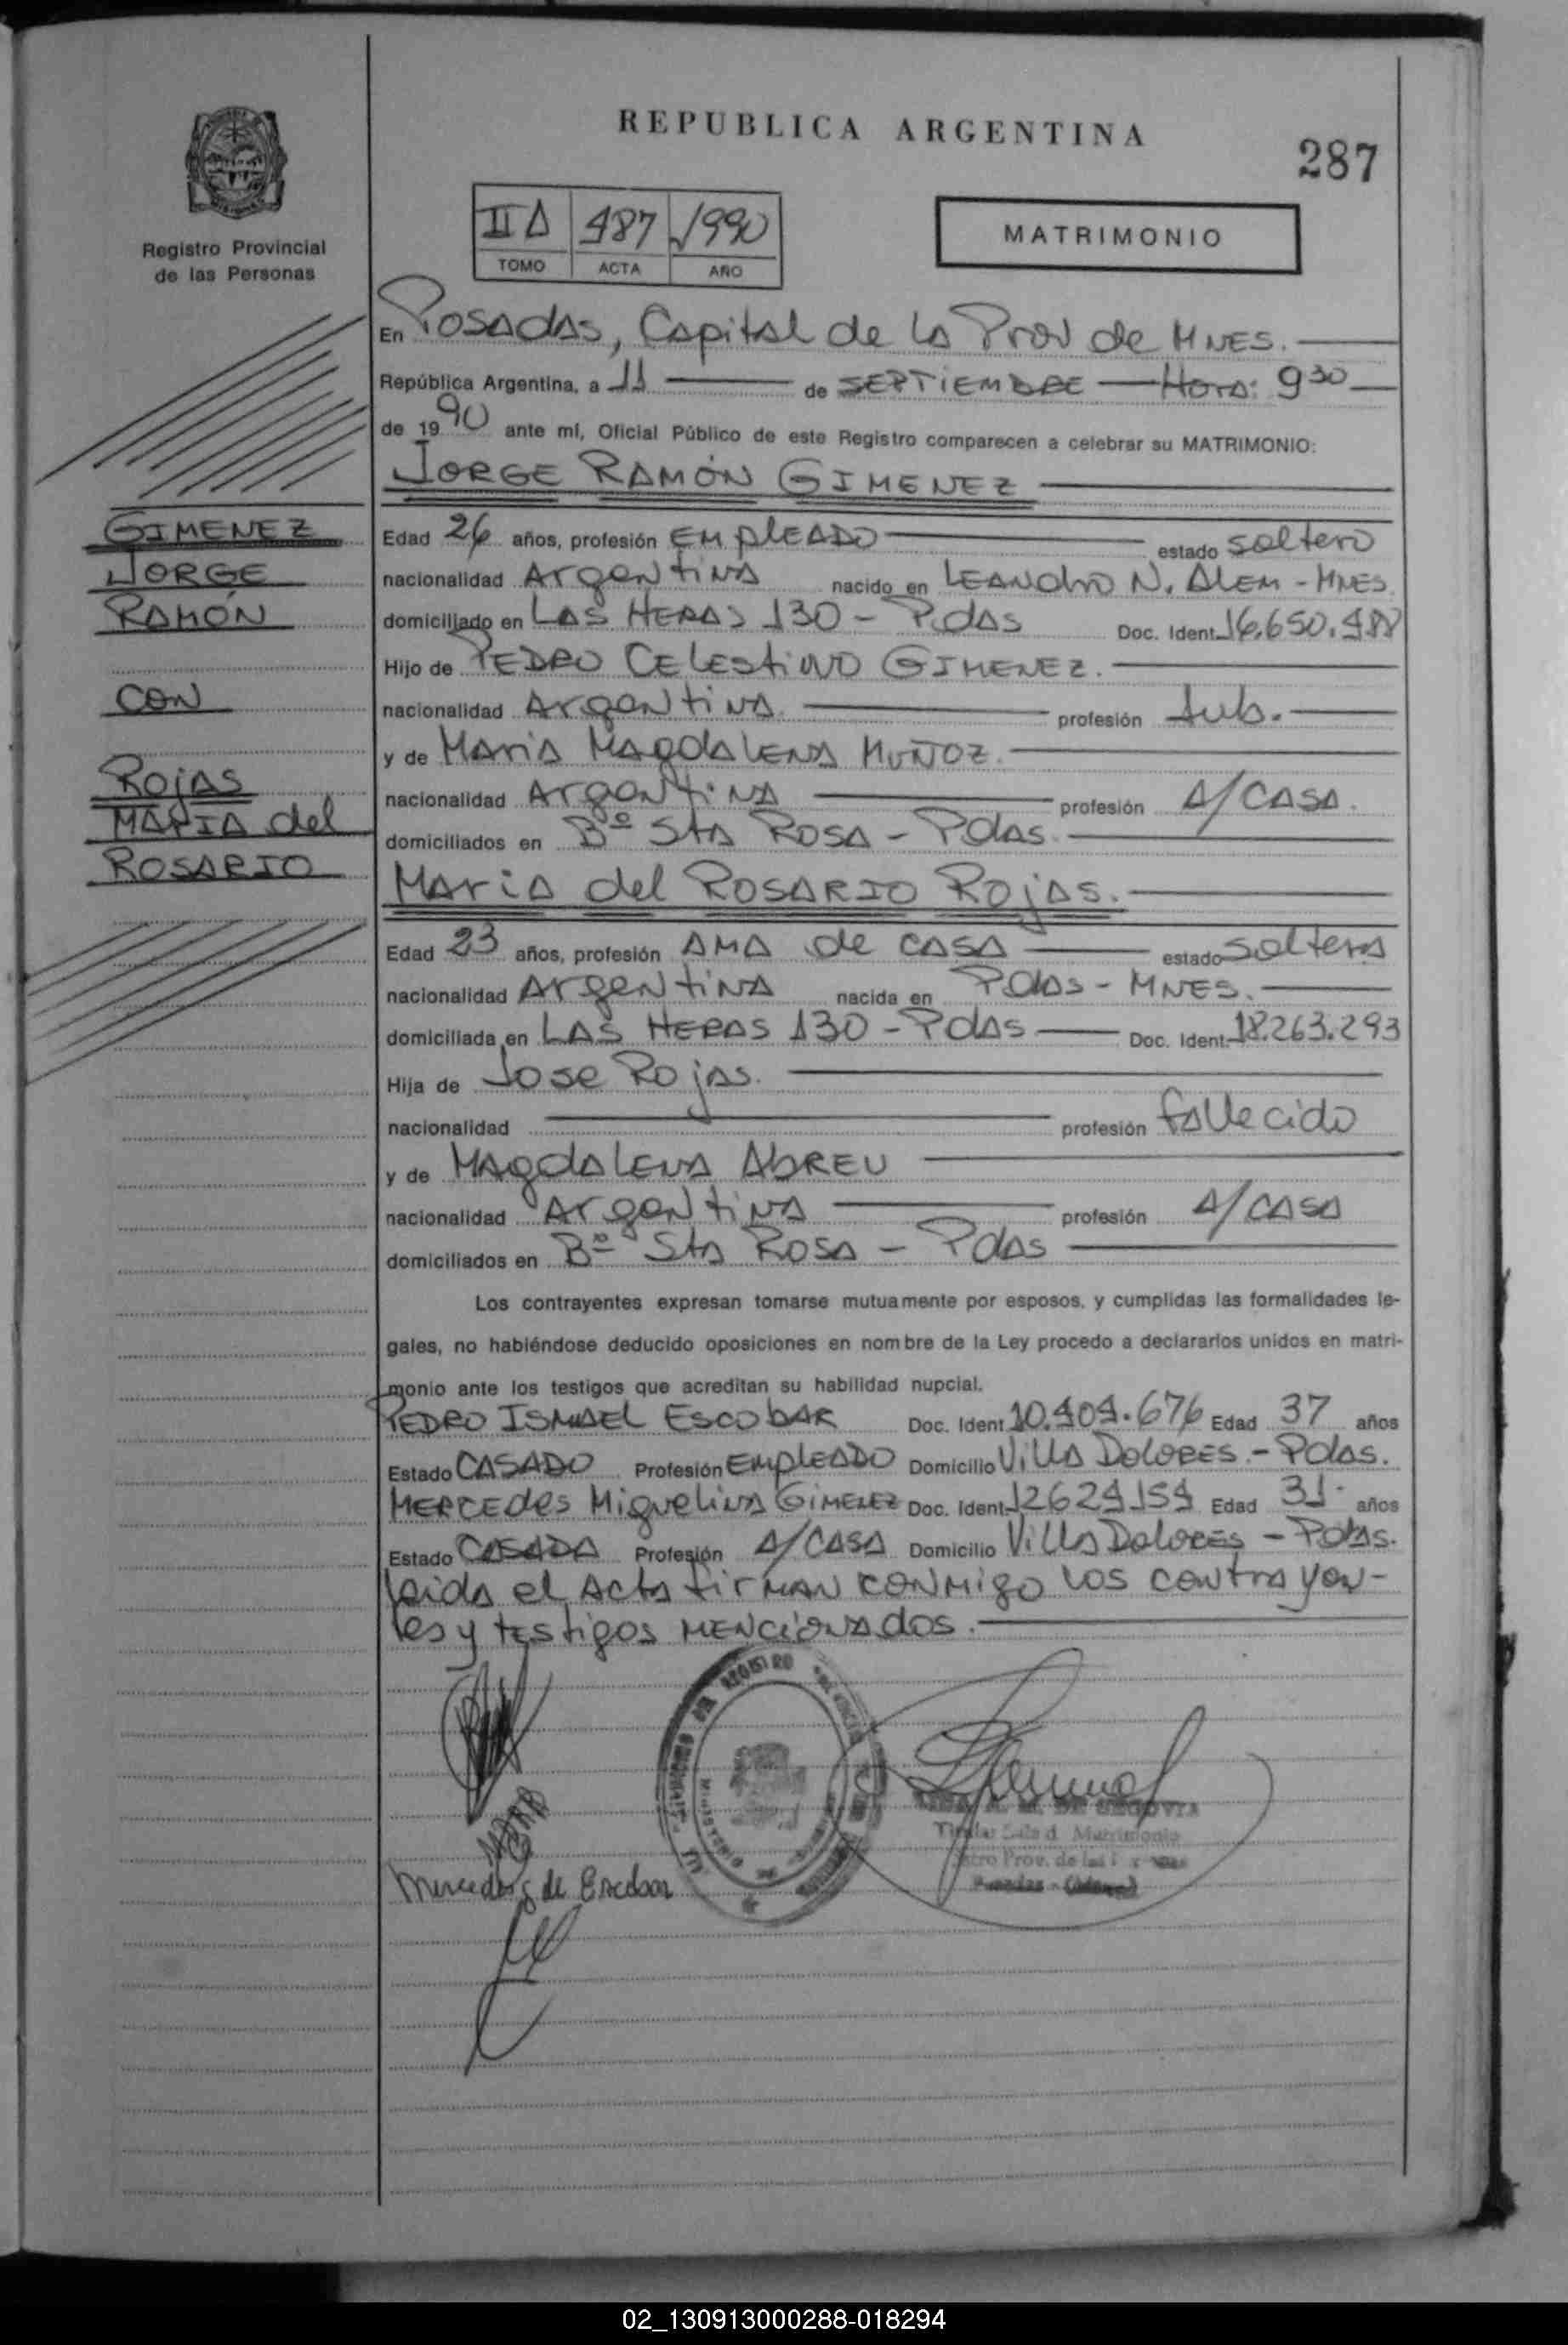 REPUBLICA ARGENTINA
287
Registro Provincial
de las Personas
II A 487 1990
TOMO ACTA AÑO
MATRIMONIO
En Posadas, Capital de la Prov de Mnes.
República Argentina, a 11 de SEPTIEMBRE Hora: 9 30
de 1990 ante mí, Oficial Público de este Registro comparecen a celebrar su MATRIMONIO:
JORGE RAMÓN GIMENEZ
GIMENEZ
JORGE
RAMÓN
CON
ROJAS
MARIA del
ROSARIO
Edad 26 años, profesión EMPLEADO estado soltero
nacionalidad Argentina nacido en LEANDRO N. ALEM - MNES.
domiciliado en LAS HERAS 130 - Pdas Doc. Ident. 16.650.
Hijo de PEDRO CELESTINO GIMENEZ.
nacionalidad Argentina. profesión Jub.
y de Maria MAGDALENA MUÑOZ.
nacionalidad Argentina profesión A/CASA.
domiciliados en Bº Sta ROSA - Pdas.
Maria del ROSARIO Rojas.
Edad 23 años, profesión AMA de CASA estado soltera
nacionalidad Argentina nacida en Pdas - MNES.
domiciliada en LAS HERAS 130 - Pdas Doc. Ident. 18.263.293
Hija de Jose Rojas.
nacionalidad profesión fallecido
y de MAGDALENA ABREU
nacionalidad Argentina profesión A/CASA
domiciliados en Bº Sta ROSA - Pdas
Los contrayentes expresan tomarse mutuamente por esposos, y cumplidas las formalidades le-
gales, no habiéndose deducido oposiciones en nombre de la Ley procedo a declararlos unidos en matri-
monio ante los testigos que acreditan su habilidad nupcial.
PEDRO ISMAEL ESCOBAR Doc. Ident 10.404.676 Edad 37 años
Estado CASADO Profesión EMPLEADO Domicilio Villa DOLORES.- Pdas.
MERCEDES Miguelina GIMENEZ Doc. Ident. 12624154 Edad 31 años
Estado CASADA Profesión A/CASA Domicilio Villa DOLORES - Pdas.
leida el Acta firman conmigo los contrayen-
tes y testigos mencionados.
DE SEGOVIA
Matrimonio
Prov. de las
Mercedes G de Escobar
02_130913000288-018294